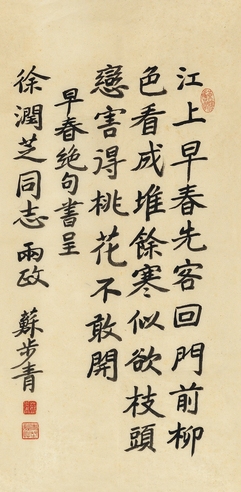 江上早春先客回門前柳
色看成堆餘寒似欲枝頭
戀害得桃花不敢開
早春絶句書呈
徐潤芝同志兩政
蘇步青